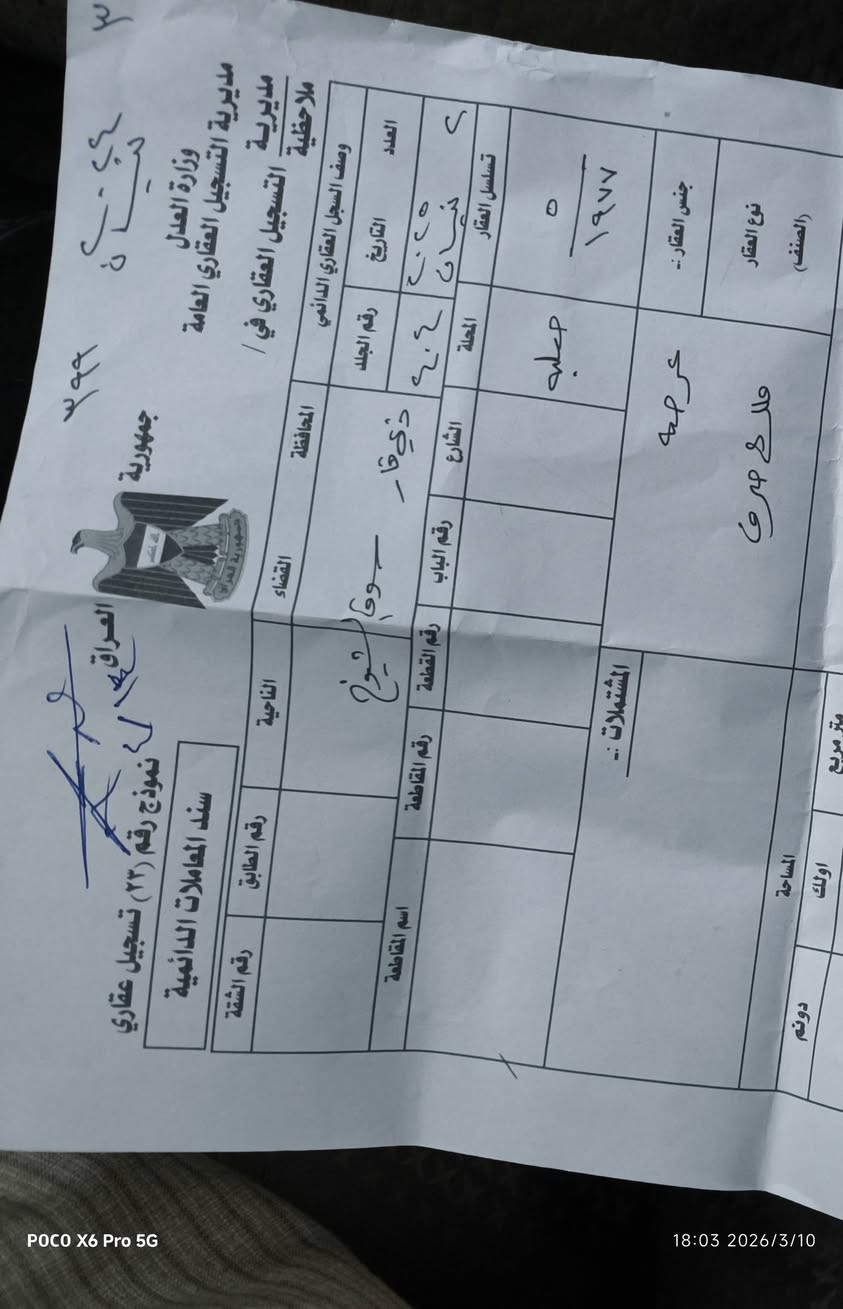 جمهورية العراق
وزارة العدل
مديرية التسجيل العقاري العامة
مديرية التسجيل العقاري في /
ملاحظية
٣٩٩
نموذج رقم (٢٣) تسجيل عقاري
سند المعاملات الدائمية
وصف السجل العقاري الدائمي
المحافظة
القضاء
الناحية
رقم الطابق
رقم الشقة
العدد
التاريخ
رقم الجلد
نيسان ٢٠٢٥
٢٠٤
ذي قار
سوق الشيوخ
تسلسل العقار
المحلة
الشارع
رقم الباب
رقم القطعة
رقم المقاطعة
اسم المقاطعة
٥
١٩٧٧
جنس العقار :-
عرصه
المشتملات :-
نوع العقار
(الصنف)
ملك صرف
المساحة
متر مربع
اولك
دونم
POCO X6 Pro 5G
18:03 2026/3/10